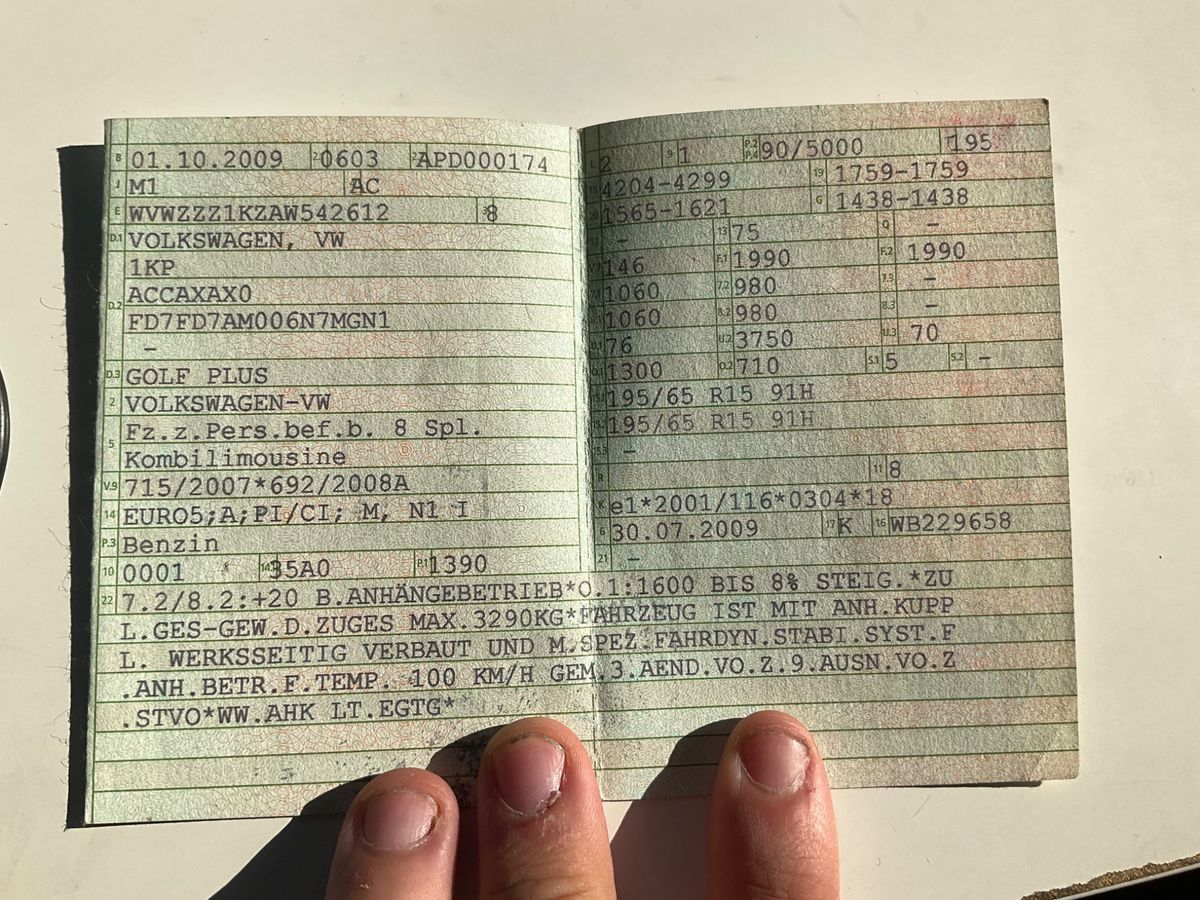 B 01.10.2009 2.1 0603 2.2 APD000174
J M1 4 AC
E WVWZZZ1KZAW542612 3 8
D.1 VOLKSWAGEN, VW
1KP
D.2 ACCAXAX0
FD7FD7AM006N7MGN1
–
D.3 GOLF PLUS
2 VOLKSWAGEN-VW
5 Fz.z.Pers.bef.b. 8 Spl.
Kombilimousine
V.9 715/2007*692/2008A
14 EURO5;A;PI/CI; M, N1 I
P.3 Benzin
10 0001 14.1 35A0 P.1 1390
L 2 9 1 P.2 P.4 90/5000 T 195
18 4204-4299 19 1759-1759
20 1565-1621 G 1438-1438
12 – 13 75 Q –
V.7 146 F.1 1990 F.2 1990
7.1 1060 7.2 980 7.3 –
8.1 1060 8.2 980 8.3 –
U.1 76 U.2 3750 U.3 70
O.1 1300 O.2 710 S.1 5 S.2 –
15.1 195/65 R15 91H
15.2 195/65 R15 91H
15.3 –
R 11 8
K e1*2001/116*0304*18
6 30.07.2009 17 K 16 WB229658
21 –
22 7.2/8.2:+20 B.ANHÄNGEBETRIEB*O.1:1600 BIS 8% STEIG.*ZU
L.GES-GEW.D.ZUGES MAX.3290KG*FAHRZEUG IST MIT ANH.KUPP
L. WERKSSEITIG VERBAUT UND M.SPEZ.FAHRDYN.STABI.SYST.F
.ANH.BETR.F.TEMP. 100 KM/H GEM.3.AEND.VO.Z.9.AUSN.VO.Z
.STVO*WW.AHK LT.EGTG*